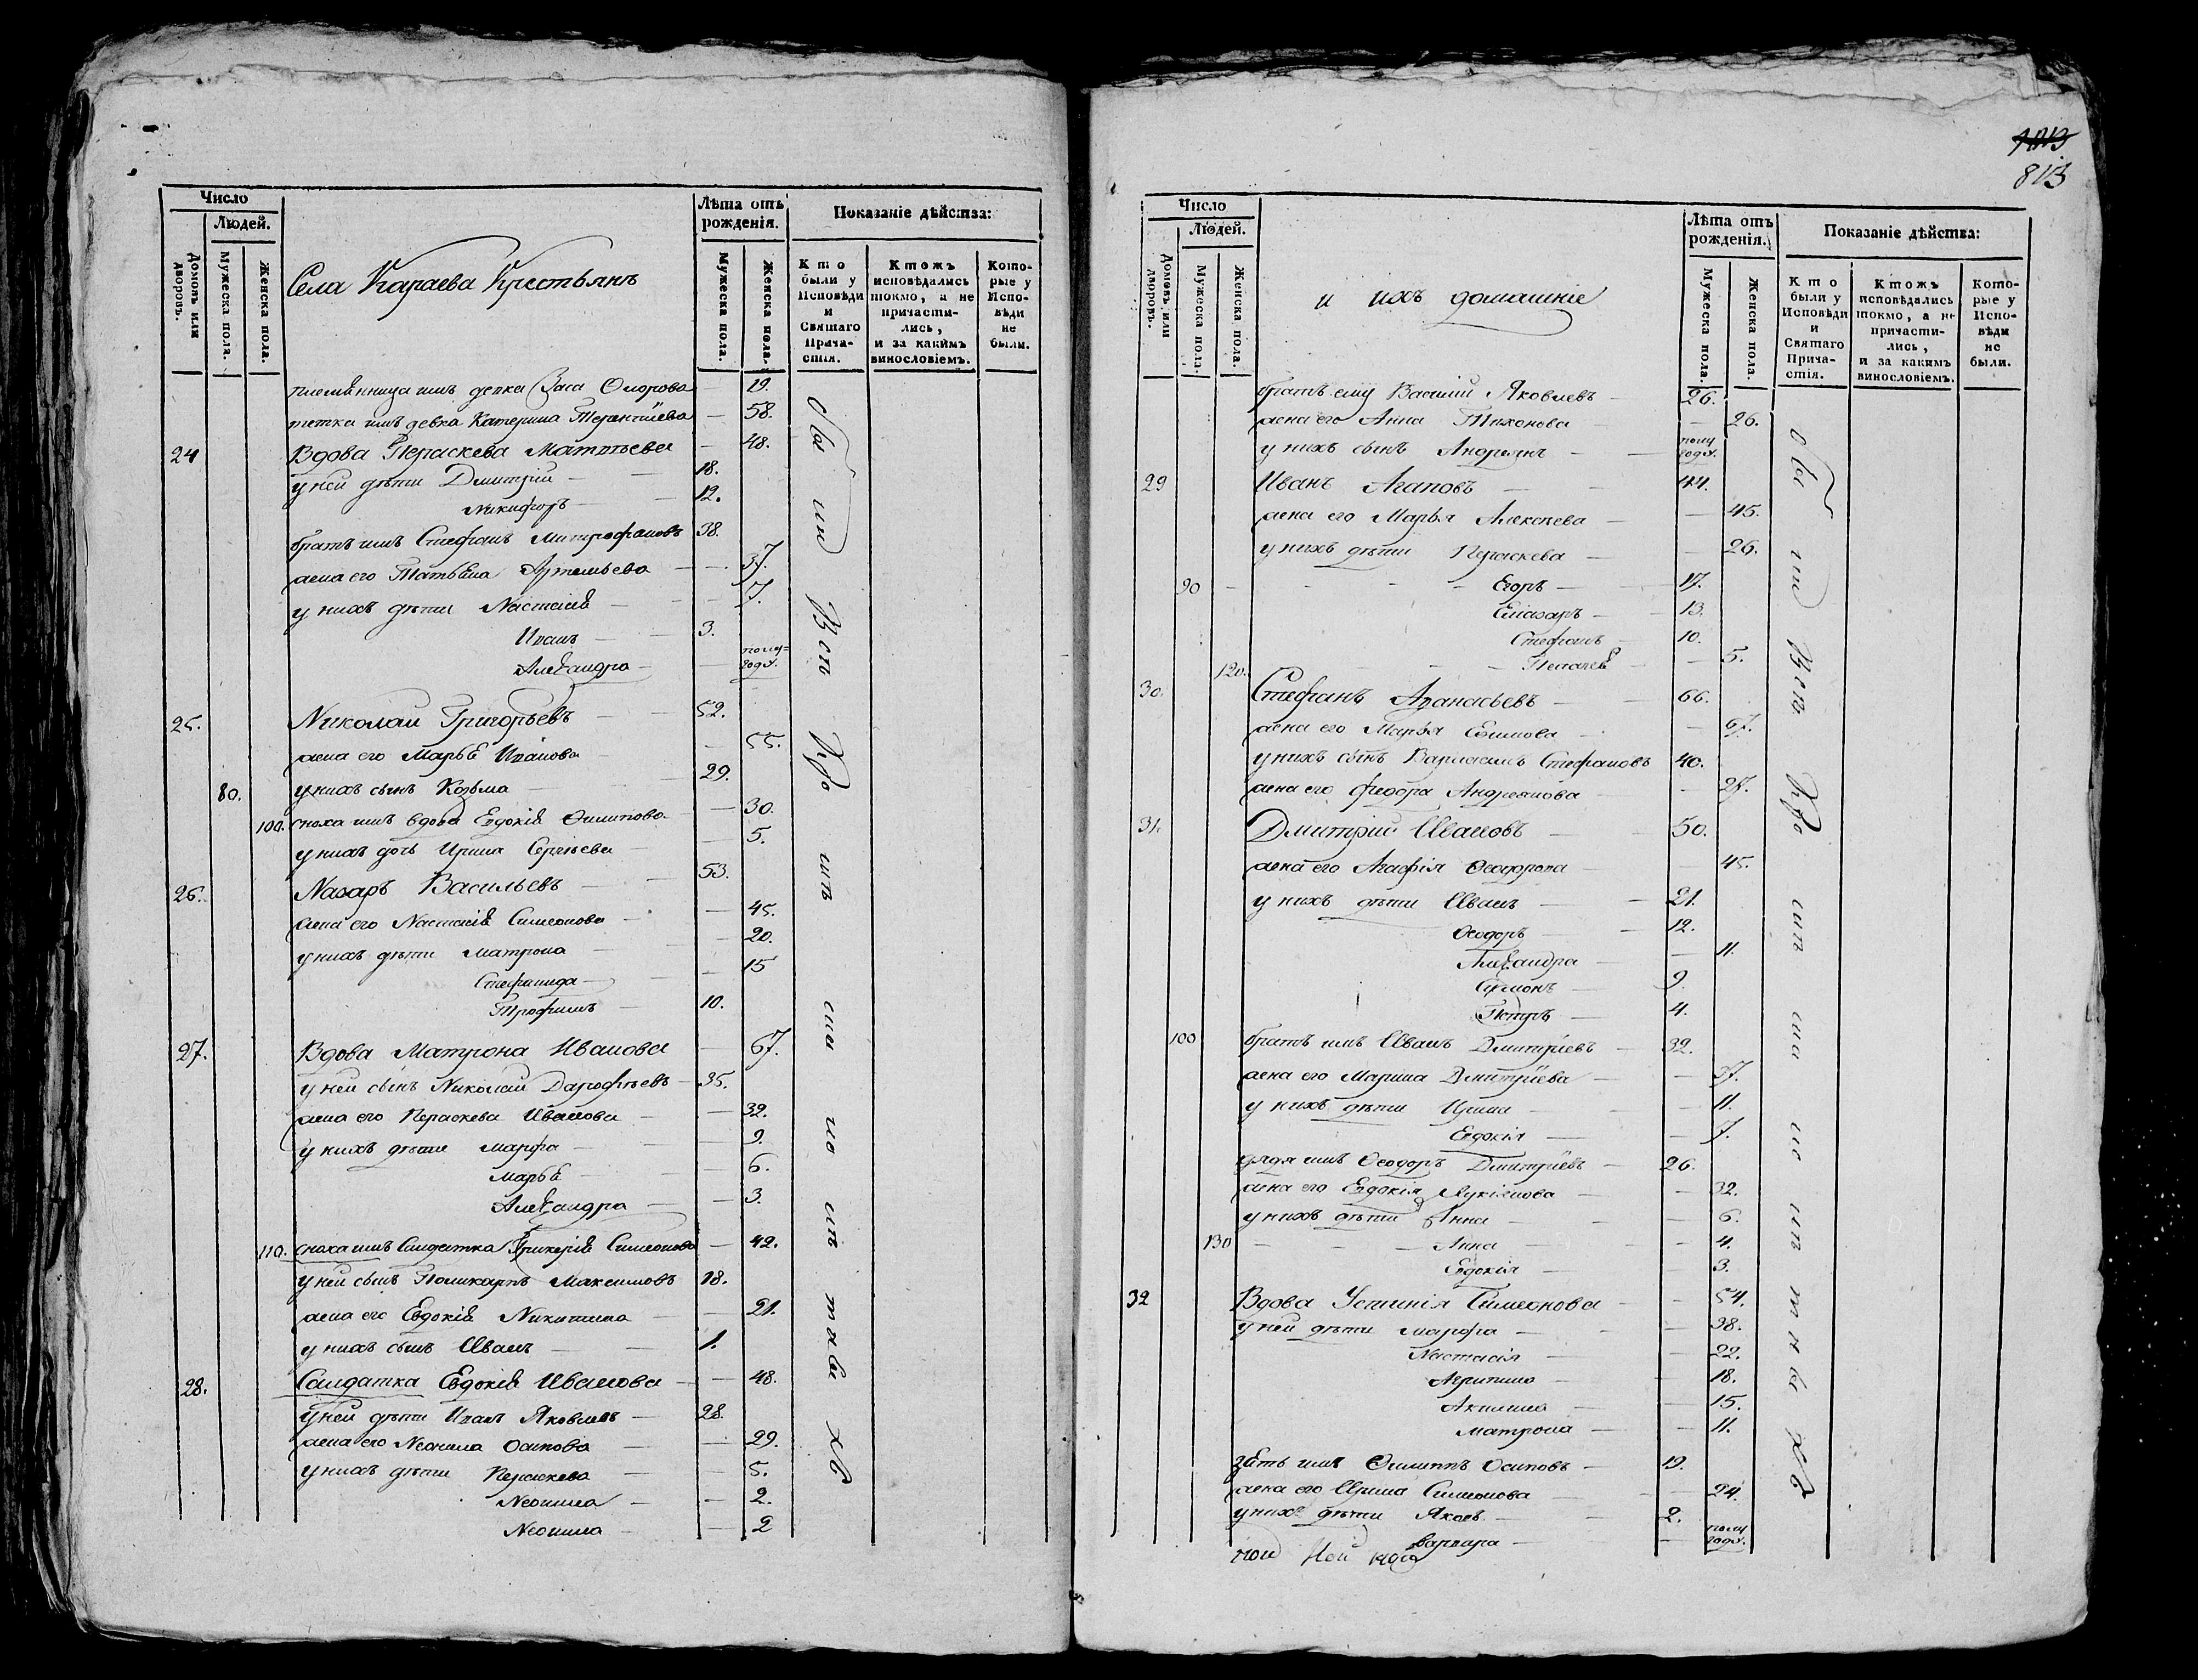 Число
Людей.
Домовъ или дворовъ.
Мужеска пола.
Женска пола.
Села Караева Крестьянъ
Лѣта отъ рожденія.
Мужеска пола.
Женска пола.
Показаніе дѣйства:
Кто были у Исповѣди и Святаго Прича-стія.
Ктожъ исповѣдались токмо, а не причасти-лись, и за какимъ винословіемъ.
Кото-рые у Испо-вѣди не были.
племянница имъ девка — 19.
тетка имъ девка Катерина Терентіева — 58.
24 Вдова Параскева Матвѣева — 48.
у ней дѣти Дмитрій — 18.
Никифоръ — 12.
братъ имъ Стефанъ Митрофановъ 38.
жена его Татьяна Артемьева — 37.
у нихъ дѣти Настасія — 7.
Иванъ — 3.
Александра — полу=года.
25. Николай Григорьевъ — 52.
жена его Марья Иванова — 55.
80. у нихъ сынъ Козьма — 29.
100. сноха имъ вдова Евдокія Филипова — 30.
у нихъ дочь Ирина Сергѣева — 5.
26. Назаръ Васильевъ — 53.
жена его Настасія Симеонова — 45.
у нихъ дѣти Матрона — 20.
Стефанида — 15
Трофимъ — 10.
27. Вдова Матрона Иванова — 67.
у ней сынъ Николай Дарофѣевъ — 35.
жена его Параскева Иванова — 32.
у нихъ дѣти Марфа — 9.
Марья — 6.
Александра — 3.
110. сноха имъ Салдатка Гликерія Симеонова — 42.
у ней сынъ Поликарпъ Максимовъ 18.
жена его Евдокія Никитина — 21.
у нихъ сынъ Иванъ — 1.
28. Салдатка Евдокія Иванова — 48.
у ней дѣти Иванъ Яковлевъ — 28.
жена его Неонила Осипова — 29.
у нихъ дѣти Параскева — 5.
Неонила — 2.
Неонила — 2
813
Число
Людей.
Домовъ или дворовъ.
Мужеска пола.
Женска пола.
и ихъ домашніе
Лѣта отъ рожденія.
Мужеска пола.
Женска пола.
Показаніе дѣйства:
Кто были у Исповѣди и Святаго Прича-стія.
Ктожъ исповѣдались токмо, а не причасти-лись, и за какимъ винословіемъ.
Кото-рые у Испо-вѣди не были.
братъ ему Василій Яковлевъ — 26.
жена его Анна Тихонова — 26.
у нихъ сынъ Андреянъ — полу года.
29 Иванъ Агаповъ — 44.
жена его Марья Алексѣева — 45.
у нихъ дѣти Параскева — 26.
90 — Егоръ — 17.
Елизаръ — 13.
Стефанъ — 10.
120. — Пелагея — 5.
30. Стефанъ Афанасьевъ — 66.
жена его Марья Ефимова — 67.
у нихъ сынъ Варламъ Стефановъ 40.
жена его Федора Андреянова
31. Дмитрій Ивановъ — 50.
жена его Агафія Ѳеодорова — 45.
у нихъ дѣти Иванъ — 21.
Ѳеодоръ — 12.
Александра — 11.
Симіонъ — 9.
Петръ — 4.
100 братъ имъ Иванъ Дмитріевъ — 32.
жена его Марина Дмитріева — 37.
у нихъ дѣти Ирина — 11.
Евдокія — 7.
дядя имъ Ѳеодоръ Дмитріевъ — 26.
жена его Евдокія Лукіянова — 32.
у нихъ дѣти Анна — 6.
130 — Анна — 4.
Евдокія — 3.
32 Вдова Устинія Симеонова — 54.
у ней дѣти Марфа — 38.
Настасія — 22.
Агрипина — 18.
Акилина — 15.
Матрона — 11.
зять имъ Филиппъ Осиповъ — 19.
жена его Ирина Симеонова — 24.
у нихъ дѣти Яковъ — 2.
Варвара — полу года.